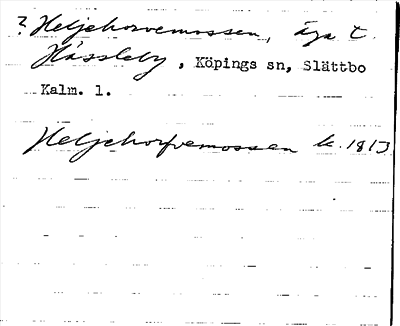 ? Heljehorvemossen, äga t.
Hässleby, Köpings sn, Slättbo
Kalm. l.
Heljehorfvemossen k. 1813